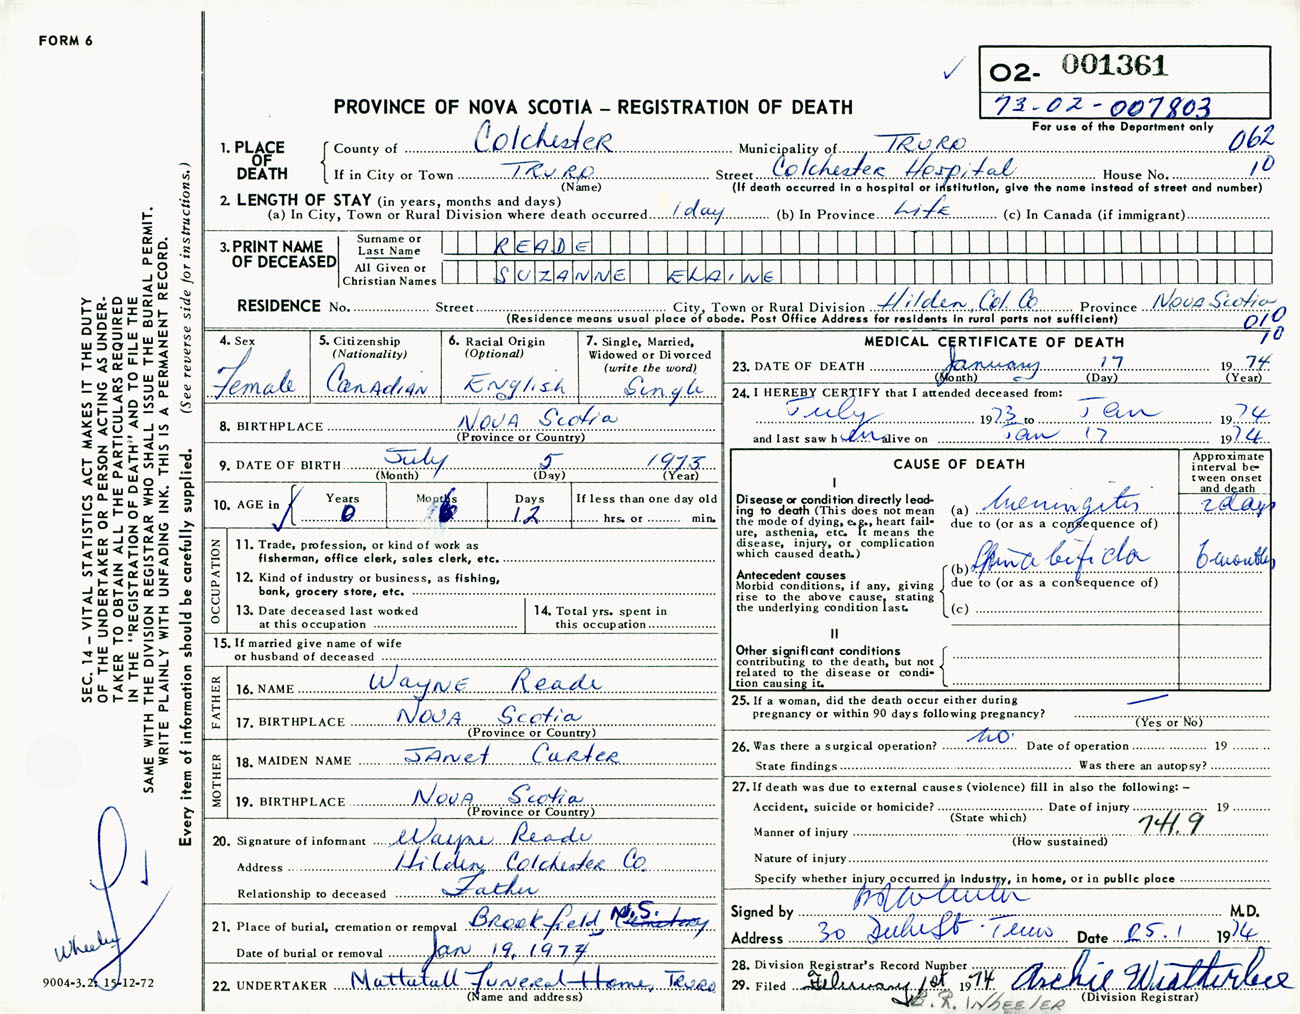 FORM 6
02- 001361
73-02-007803
For use of the Department only
PROVINCE OF NOVA SCOTIA – REGISTRATION OF DEATH
062
10
1. PLACE OF DEATH
County of Colchester Municipality of TRURO
If in City or Town TRURO Street Colchester Hospital House No.
(Name) (If death occurred in a hospital or institution, give the name instead of street and number)
2. LENGTH OF STAY (in years, months and days)
(a) In City, Town or Rural Division where death occurred 1 day (b) In Province Life (c) In Canada (if immigrant)
3. PRINT NAME OF DECEASED
Surname or Last Name READE
All Given or Christian Names SUZANNE ELAINE
RESIDENCE No. Street City, Town or Rural Division Hilden, Col. Co Province Nova Scotia
(Residence means usual place of abode. Post Office Address for residents in rural parts not sufficient)
010
10
4. Sex
Female
5. Citizenship
(Nationality)
Canadian
6. Racial Origin
(Optional)
English
7. Single, Married,
Widowed or Divorced
(write the word)
Single
8. BIRTHPLACE Nova Scotia
(Province or Country)
9. DATE OF BIRTH July 5 1973
(Month) (Day) (Year)
10. AGE in Years Months Days If less than one day old
0 6 12 hrs. or min.
OCCUPATION
11. Trade, profession, or kind of work as
fisherman, office clerk, sales clerk, etc.
12. Kind of industry or business, as fishing,
bank, grocery store, etc.
13. Date deceased last worked
at this occupation
14. Total yrs. spent in
this occupation
15. If married give name of wife
or husband of deceased
FATHER
16. NAME Wayne Reade
17. BIRTHPLACE Nova Scotia
(Province or Country)
MOTHER
18. MAIDEN NAME Janet Carter
19. BIRTHPLACE Nova Scotia
(Province or Country)
20. Signature of informant Wayne Reade
Address Hilden Colchester Co.
Relationship to deceased Father
21. Place of burial, cremation or removal Brookfield N.S. Cemetery
Date of burial or removal Jan 19, 1974
22. UNDERTAKER Mattatall Funeral Home, Truro
(Name and address)
MEDICAL CERTIFICATE OF DEATH
23. DATE OF DEATH January 17 1974
(Month) (Day) (Year)
24. I HEREBY CERTIFY that I attended deceased from:
July 1973 to Jan 1974
and last saw her alive on Jan 17 1974
CAUSE OF DEATH
Approximate
interval be-
tween onset
and death
I
Disease or condition directly lead-
ing to death (This does not mean
the mode of dying, e.g., heart fail-
ure, asthenia, etc. It means the
disease, injury, or complication
which caused death.)
(a) Meningitis 2 days
due to (or as a consequence of)
Antecedent causes
Morbid conditions, if any, giving
rise to the above cause, stating
the underlying condition last.
(b) Spina bifida 6 months
due to (or as a consequence of)
(c)
II
Other significant conditions
contributing to the death, but not
related to the disease or condi-
tion causing it.
25. If a woman, did the death occur either during
pregnancy or within 90 days following pregnancy? —
(Yes or No)
26. Was there a surgical operation? no. Date of operation 19
State findings Was there an autopsy?
27. If death was due to external causes (violence) fill in also the following: –
Accident, suicide or homicide? Date of injury 19
(State which)
741.9
Manner of injury
(How sustained)
Nature of injury
Specify whether injury occurred in industry, in home, or in public place
Signed by M.D.
Address 30 Duke St - Truro Date 25.1 1974
28. Division Registrar's Record Number
29. Filed February 1st 1974 Archie Weatherbee
(Division Registrar)
B.R. WHEELER
SEC. 14 – VITAL STATISTICS ACT MAKES IT THE DUTY
OF THE UNDERTAKER OR PERSON ACTING AS UNDER-
TAKER TO OBTAIN ALL THE PARTICULARS REQUIRED
IN THE "REGISTRATION OF DEATH" AND TO FILE THE
SAME WITH THE DIVISION REGISTRAR WHO SHALL ISSUE THE BURIAL PERMIT.
WRITE PLAINLY WITH UNFADING INK. THIS IS A PERMANENT RECORD.
Every item of information should be carefully supplied. (See reverse side for instructions.)
Wheeler
9004-3.21 15-12-72